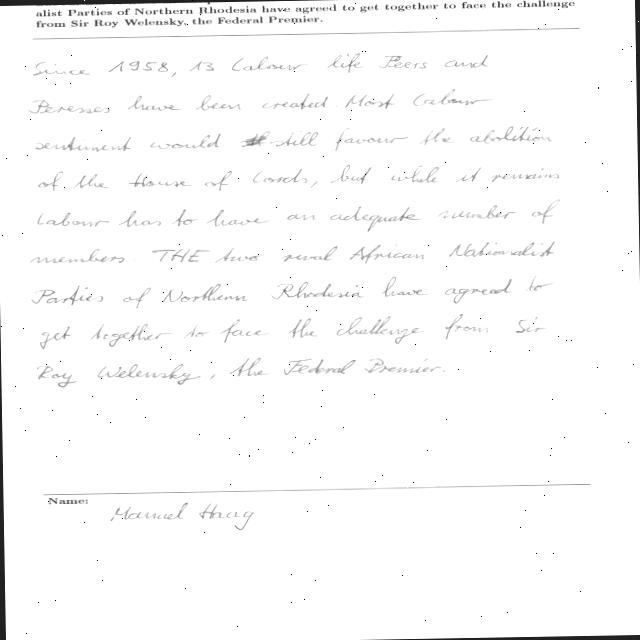 alist Parties of Northern Rhodesia have agreed to get together to face the challenge
from Sir Roy Welensky, the Federal Premier.
Since 1958, 13 Labour life Peers and
Peresses have been created. Most Labour
sentiment would still favour the abolition
of the House of Lords, but while it remains
Labour has to have an adequate number of
members. THE two rival African Nationalist
Parties of Northern Rhodesia have agreed to
get together to face the challenge from Sir
Roy Welensky, the Federal Premier.
Name:
Manuel Haag